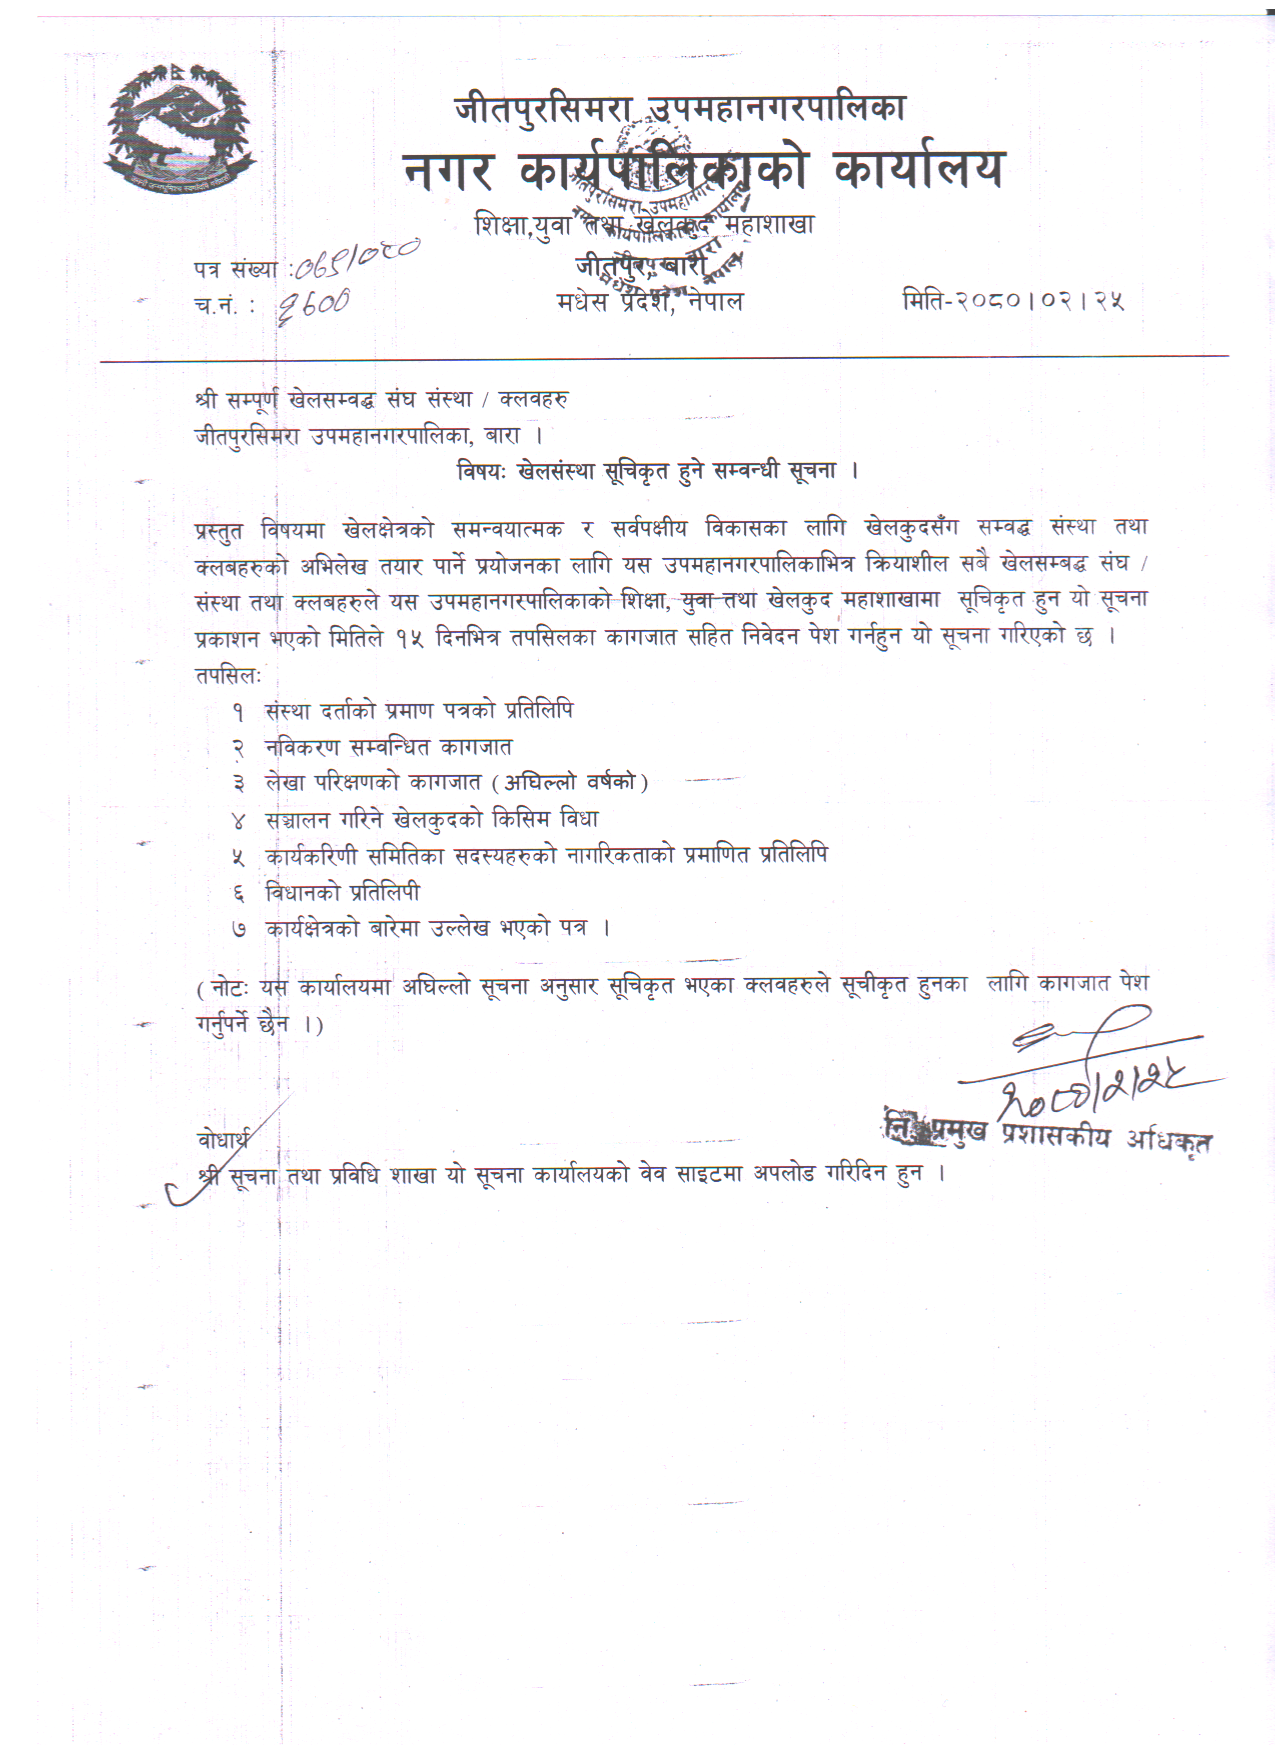 जीतपुरसिमरा उपमहानगरपालिका
नगर कार्यपालिकाको कार्यालय
शिक्षा,युवा तथा खेलकुद महाशाखा
जीतपुर, बारा
मधेस प्रदेश, नेपाल
पत्र संख्या :०७९/०८०
च.नं. :
मिति-२०८०।०२।२५
जीतपुरसिमरा उपमहानगरपालिका
नगर कार्यपालिकाको कार्यालय
जीतपुर, बारा
मधेश प्रदेश, नेपाल
श्री सम्पूर्ण खेलसम्वद्ध संघ संस्था / क्लवहरु
जीतपुरसिमरा उपमहानगरपालिका, बारा ।
विषयः खेलसंस्था सूचिकृत हुने सम्वन्धी सूचना ।
प्रस्तुत विषयमा खेलक्षेत्रको समन्वयात्मक र सर्वपक्षीय विकासका लागि खेलकुदसँग सम्वद्ध संस्था तथा
क्लबहरुको अभिलेख तयार पार्ने प्रयोजनका लागि यस उपमहानगरपालिकाभित्र क्रियाशील सबै खेलसम्बद्ध संघ /
संस्था तथा क्लबहरुले यस उपमहानगरपालिकाको शिक्षा, युवा तथा खेलकुद महाशाखामा सूचिकृत हुन यो सूचना
प्रकाशन भएको मितिले १५ दिनभित्र तपसिलका कागजात सहित निवेदन पेश गर्नहुन यो सूचना गरिएको छ ।
तपसिलः
१ संस्था दर्ताको प्रमाण पत्रको प्रतिलिपि
२ नविकरण सम्वन्धित कागजात
३ लेखा परिक्षणको कागजात (अघिल्लो वर्षको)
४ सञ्चालन गरिने खेलकुदको किसिम विधा
५ कार्यकरिणी समितिका सदस्यहरुको नागरिकताको प्रमाणित प्रतिलिपि
६ विधानको प्रतिलिपी
७ कार्यक्षेत्रको बारेमा उल्लेख भएको पत्र ।
( नोटः यस कार्यालयमा अघिल्लो सूचना अनुसार सूचिकृत भएका क्लवहरुले सूचीकृत हुनका लागि कागजात पेश
गर्नुपर्ने छैन ।)
२०८०/२/२५
नि. प्रमुख प्रशासकीय अधिकृत
वोधार्थ
श्री सूचना तथा प्रविधि शाखा यो सूचना कार्यालयको वेव साइटमा अपलोड गरिदिन हुन ।